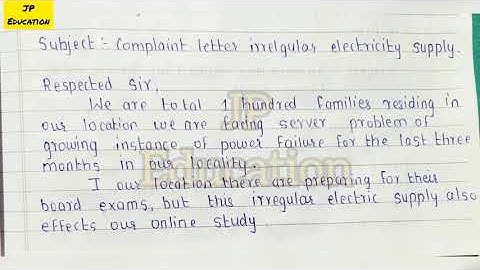 JP
EDUCATION
Subject:- Complaint letter irrelgular electricity supply.
Respected Sir,
We are total 1 hundred families residing in
our location we are facing server problem of
growing instance of power failure for the last three
months in our locality.
I our location there are preparing for their
board exams, but this irregular electric supply also
effects our online study.
JP
Education